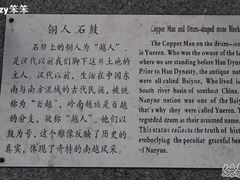 zy笨笨
铜人石鼓
石鼓上的铜人为“越人”，
是汉代以前我们脚下这片土地的
主人。汉代以前，生活在中国东
南与南方流域的古代民族，被统
称为“百越”，岭南越族是百越
的分支，故称“越人”。他们以
鼓为号，这个雕像反映了历史的
真实，体现了奇特的南越风采。
Copper Man and Drum-shaped stone Block
The Copper Man on the drum-stone
is Yueren. Who was the owner of the la
where we are standing before Han Dynasty.
Prior to Han Dynasty, the antique nation
were all called Baiyue, Who lived in
South river basin of southeast China.
Nanyue nation was one of the Baiyue
that's why they were called Yueren. They
regarded drum as their assumed name.
This statue reflects the truth of history
embodying the peculiar graceful bearing
of Nanyue.